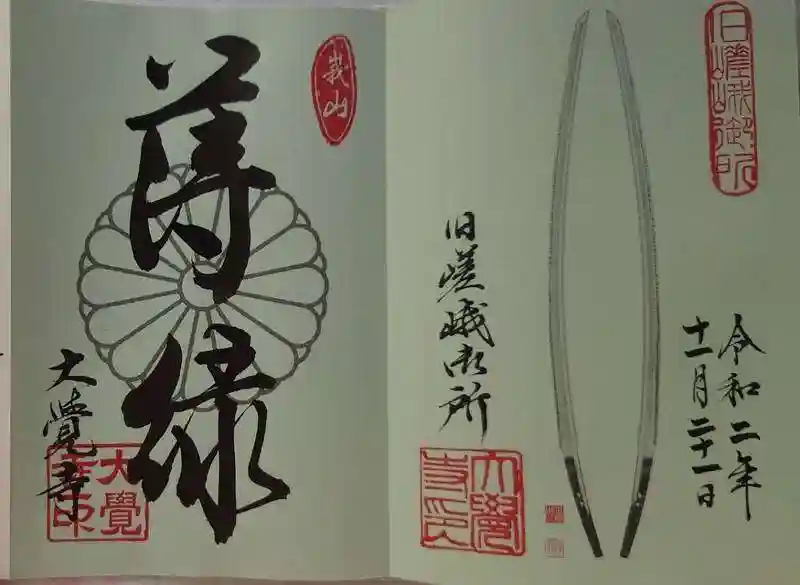 旧嵯峨御所
令和二年
十一月二十一日
旧嵯峨御所
大覺寺印
峩山
薄緑
大覺寺
大覺寺印